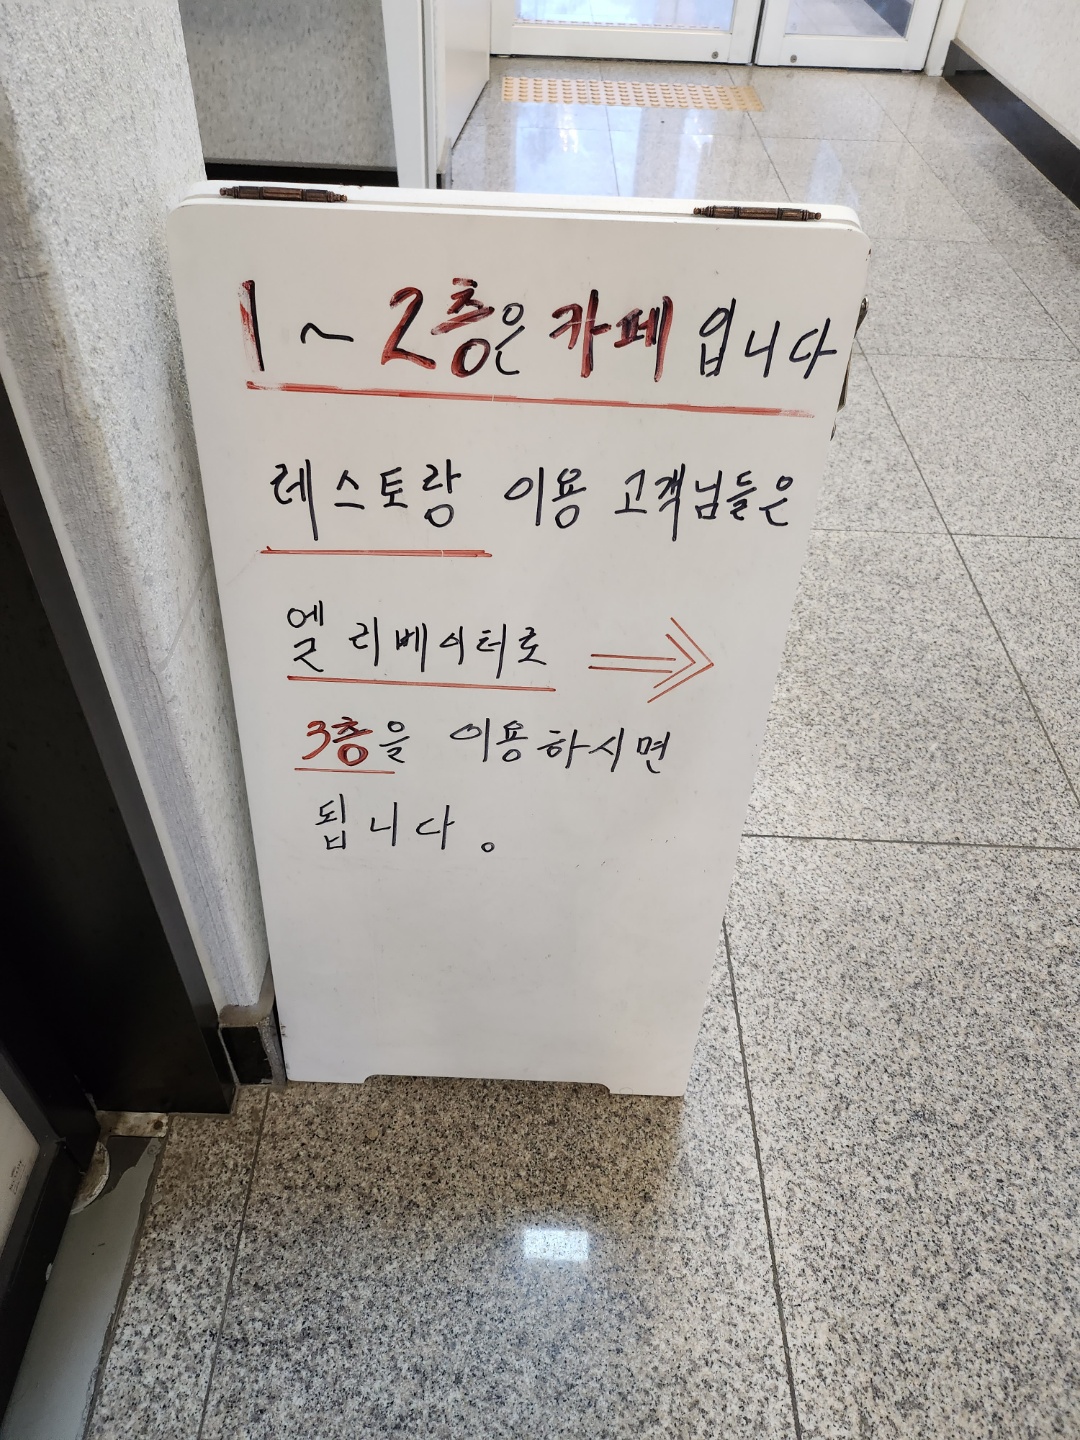 1 ~ 2층은 카페 입니다
레스토랑 이용 고객님들은
엘리베이터로 ⇒
3층을 이용하시면
됩니다。